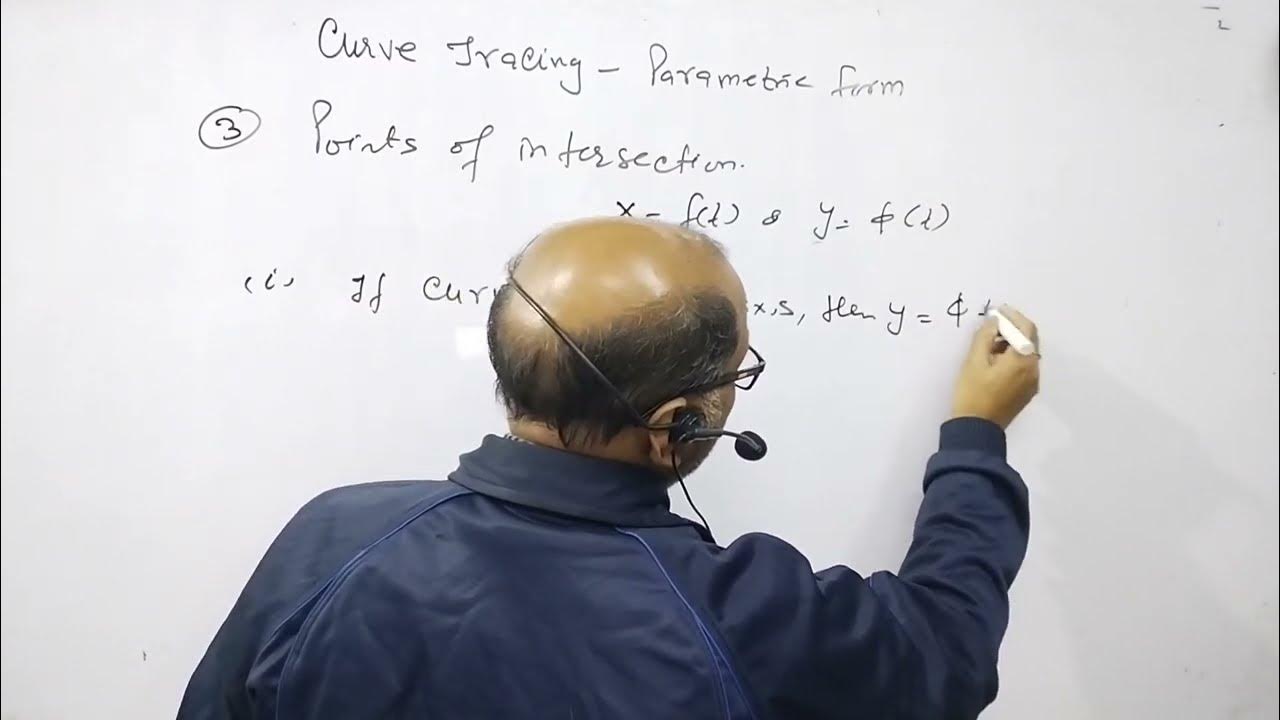 Curve Tracing - Parametric form
③ Points of intersection.
x = f(t) & y = φ(t)
(i) If Curv x,s, then y = φ